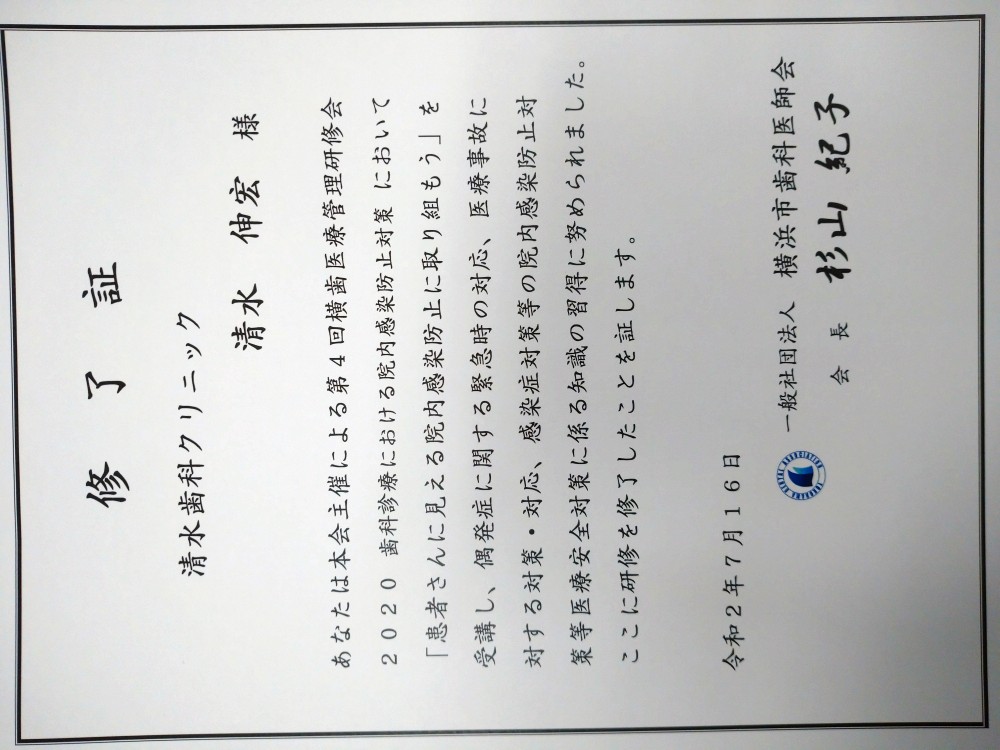 修了証
清水歯科クリニック
清水 伸宏 様
あなたは本会主催による第4回横歯医療管理研修会
2020 歯科診療における院内感染防止対策 において
「患者さんに見える院内感染防止に取り組もう」を
受講し、偶発症に関する緊急時の対応、医療事故に
対する対策・対応、感染症対策等の院内感染防止対
策等医療安全対策に係る知識の習得に努められました。
ここに研修を修了したことを証します。
令和2年7月16日
YOKOHAMA DENTAL ASSOCIATION
一般社団法人 横浜市歯科医師会
会長 杉山 紀子